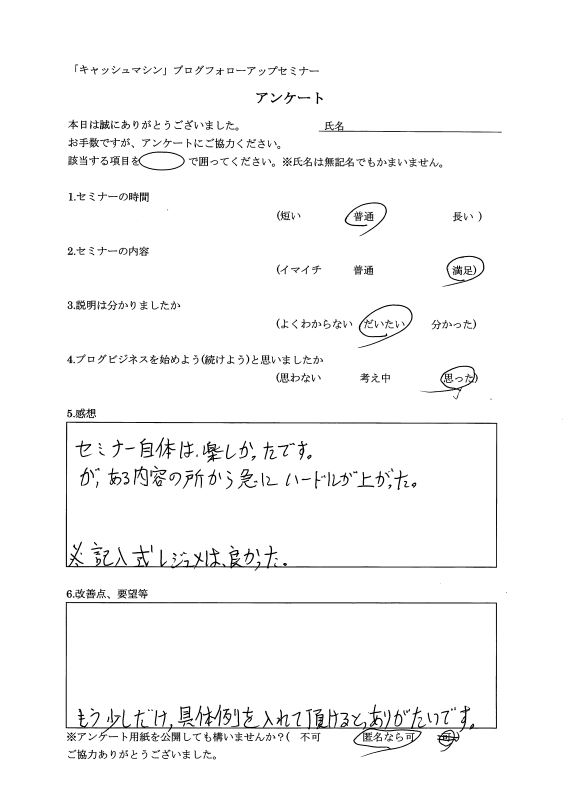 「キャッシュマシン」ブログフォローアップセミナー
アンケート
本日は誠にありがとうございました。 氏名
お手数ですが、アンケートにご協力ください。
該当する項目を で囲ってください。※氏名は無記名でもかまいません。
1.セミナーの時間
(短い 普通 長い )
2.セミナーの内容
(イマイチ 普通 満足)
3.説明は分かりましたか
(よくわからない だいたい 分かった)
4.ブログビジネスを始めよう(続けよう)と思いましたか
(思わない 考え中 思った)
5.感想
セミナー自体は、楽しかったです。
が、ある内容の所から急にハードルが上がった。
※記入式レジュメは、良かった。
6.改善点、要望等
もう少しだけ、具体例を入れて頂けると、ありがたいです。
※アンケート用紙を公開しても構いませんか?( 不可 匿名なら可 可)
ご協力ありがとうございました。